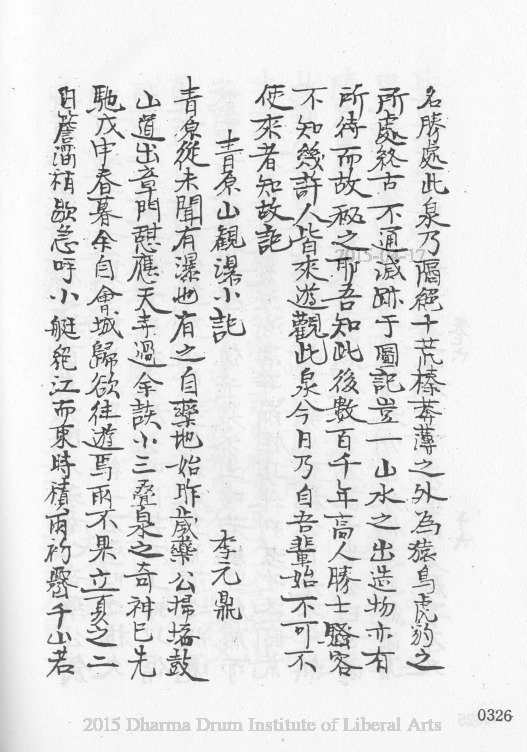 名勝處此泉乃隔絕于荒榛莽薄之外為猿鳥虎豹之
所處終古不通滅跡于圖記豈一山水之出造物亦有
所待而故秘之耶吾知此後數百千年高人勝士騷客
不知幾許人皆來遊觀此泉今日乃自吾輩始不可不
使來者知故記
青原山觀瀑小記
李元鼎
青原從未聞有瀑也有之自藥地始昨歲藥公掃塔鼓
山道出章門憇應天寺過余談小三疊泉之奇神已先
馳戊申春暮余自會城歸欲往遊焉雨不果立夏之二
日簷溜稍歇急呼小艇絕江而東時積雨初霽千山若
0326
2015-04-17
2015 Dharma Drum Institute of Liberal Arts